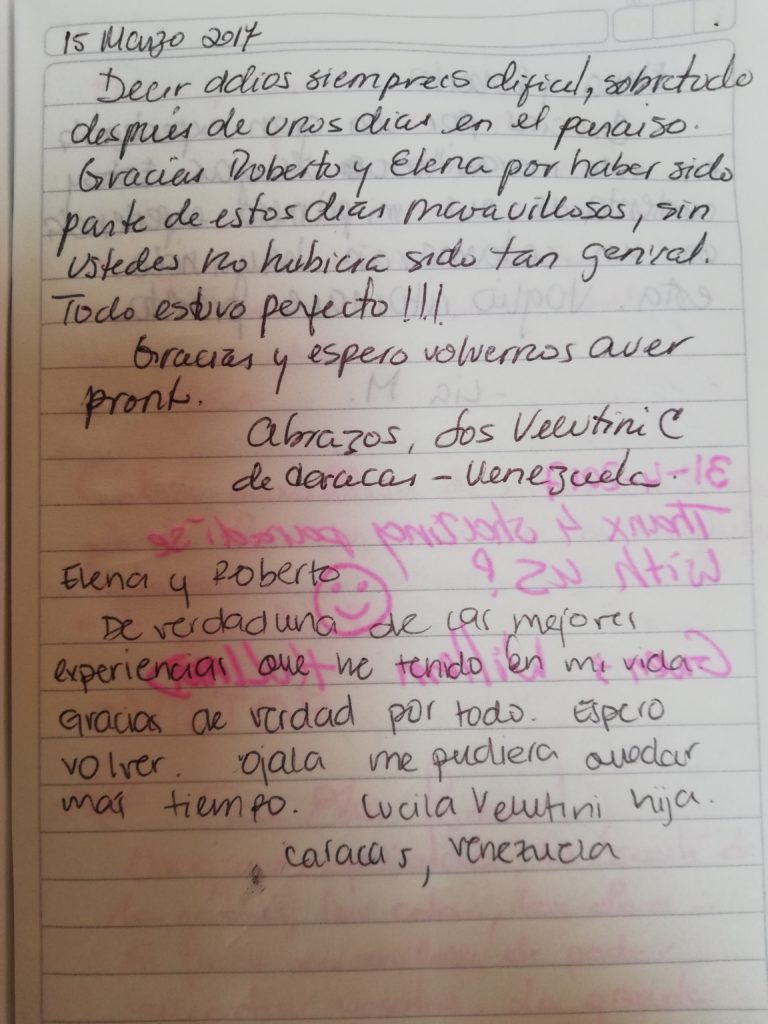 15 Marzo 2017
Decir adios siempre es dificil, sobretodo
después de unos dias en el paraiso.
Gracias Roberto y Elena por haber sido
parte de estos dias maravillosos, sin
ustedes no hubiera sido tan genial.
Todo estuvo perfecto!!!
Gracias y espero volvernos a ver
pront.
Abrazos, los Velutini C
de Caracas - Venezuela.
31-
Thanx 4 sharing paradise
with us!
Elena y Roberto
De verdad una de las mejores
experiencias que he tenido en mi vida
Gracias de verdad por todo. Espero
volver. Ojala me pudiera quedar
mas tiempo. Lucila Velutini hija.
Caracas, Venezuela